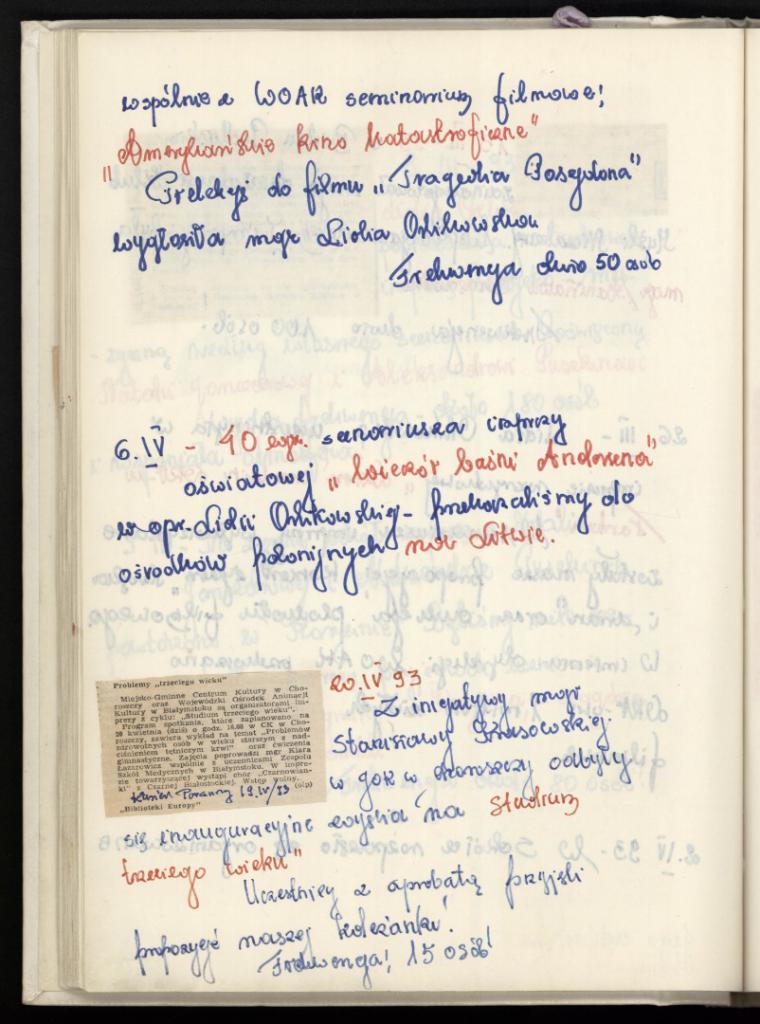 wspólnie z WOAK seminarium filmowe!
"Amerykańskie kino katastroficzne"
Prelekcję do filmu „Tragedia Posejdona"
wygłosiła mgr Lidia Ożikowska
Frekwencja około 50 osób
6.IV - 40 egz. scenariusza imprezy
oświatowej „Wieczór baśni Andersena"
w opr. Lidii - przekazaliśmy do
ośrodków polonijnych na Litwie.
20.IV 93
Z inicjatywy mgr
Stanisławy
w GOK w Choroszczy odbyły
się inauguracyjne zajęcia na Studium
trzeciego wieku"
Uczestnicy z aprobatą przyjęli
propozycję naszej koleżanki!
Frekwencja! 15 osób!
Problemy „trzeciego wieku"
Miejsko-Gminne Centrum Kultury w Cho-
roszczy oraz Wojewódzki Ośrodek Animacji
Kultury w Białymstoku są organizatorami im-
prezy z cyklu: „Studium trzeciego wieku".
Program spotkania, które zaplanowano na
20 kwietnia (dziś) o godz. 16.00 w CK w Cho-
roszczy, zawiera wykład na temat „Problemów
zdrowotnych osób w wieku starszym z nad-
ciśnieniem tętniczym krwi" oraz ćwiczenia
gimnastyczne. Zajęcia poprowadzi mgr Klara
Łazarowicz wspólnie z uczennicami Zespołu
Szkół Medycznych w Białymstoku. W impre-
zie towarzyszącej wystąpi chór „Czarnowian-
ki" z Czarnej Białostockiej. Wstęp wolny.
(olp)
Kurier Poranny 19.IV/93
„Biblioteki Europy"